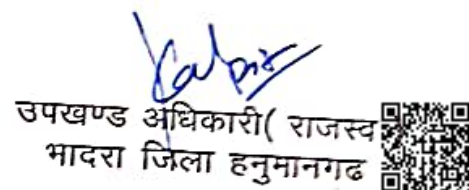 उपखण्ड अधिकारी( राजस्व
भादरा जिला हनुमानगढ